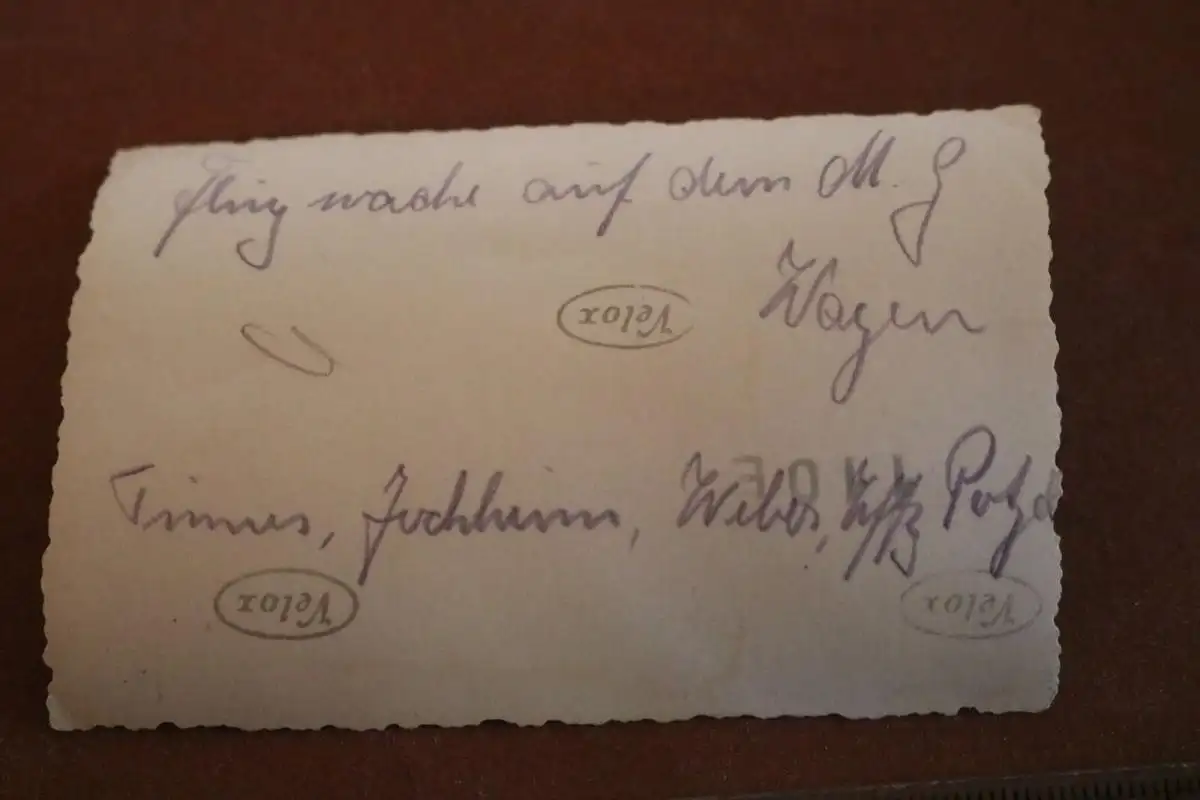 Flugwache auf dem M. G
Velox
Wagen
Timmes, Jochheim, Weber, Uffz
Velox
Velox